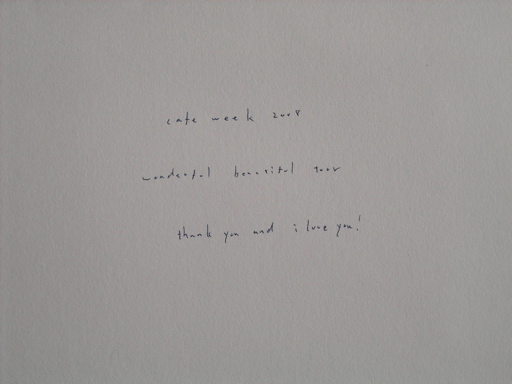 cafe week 2008
wonderful beautiful
thank you and i love you!